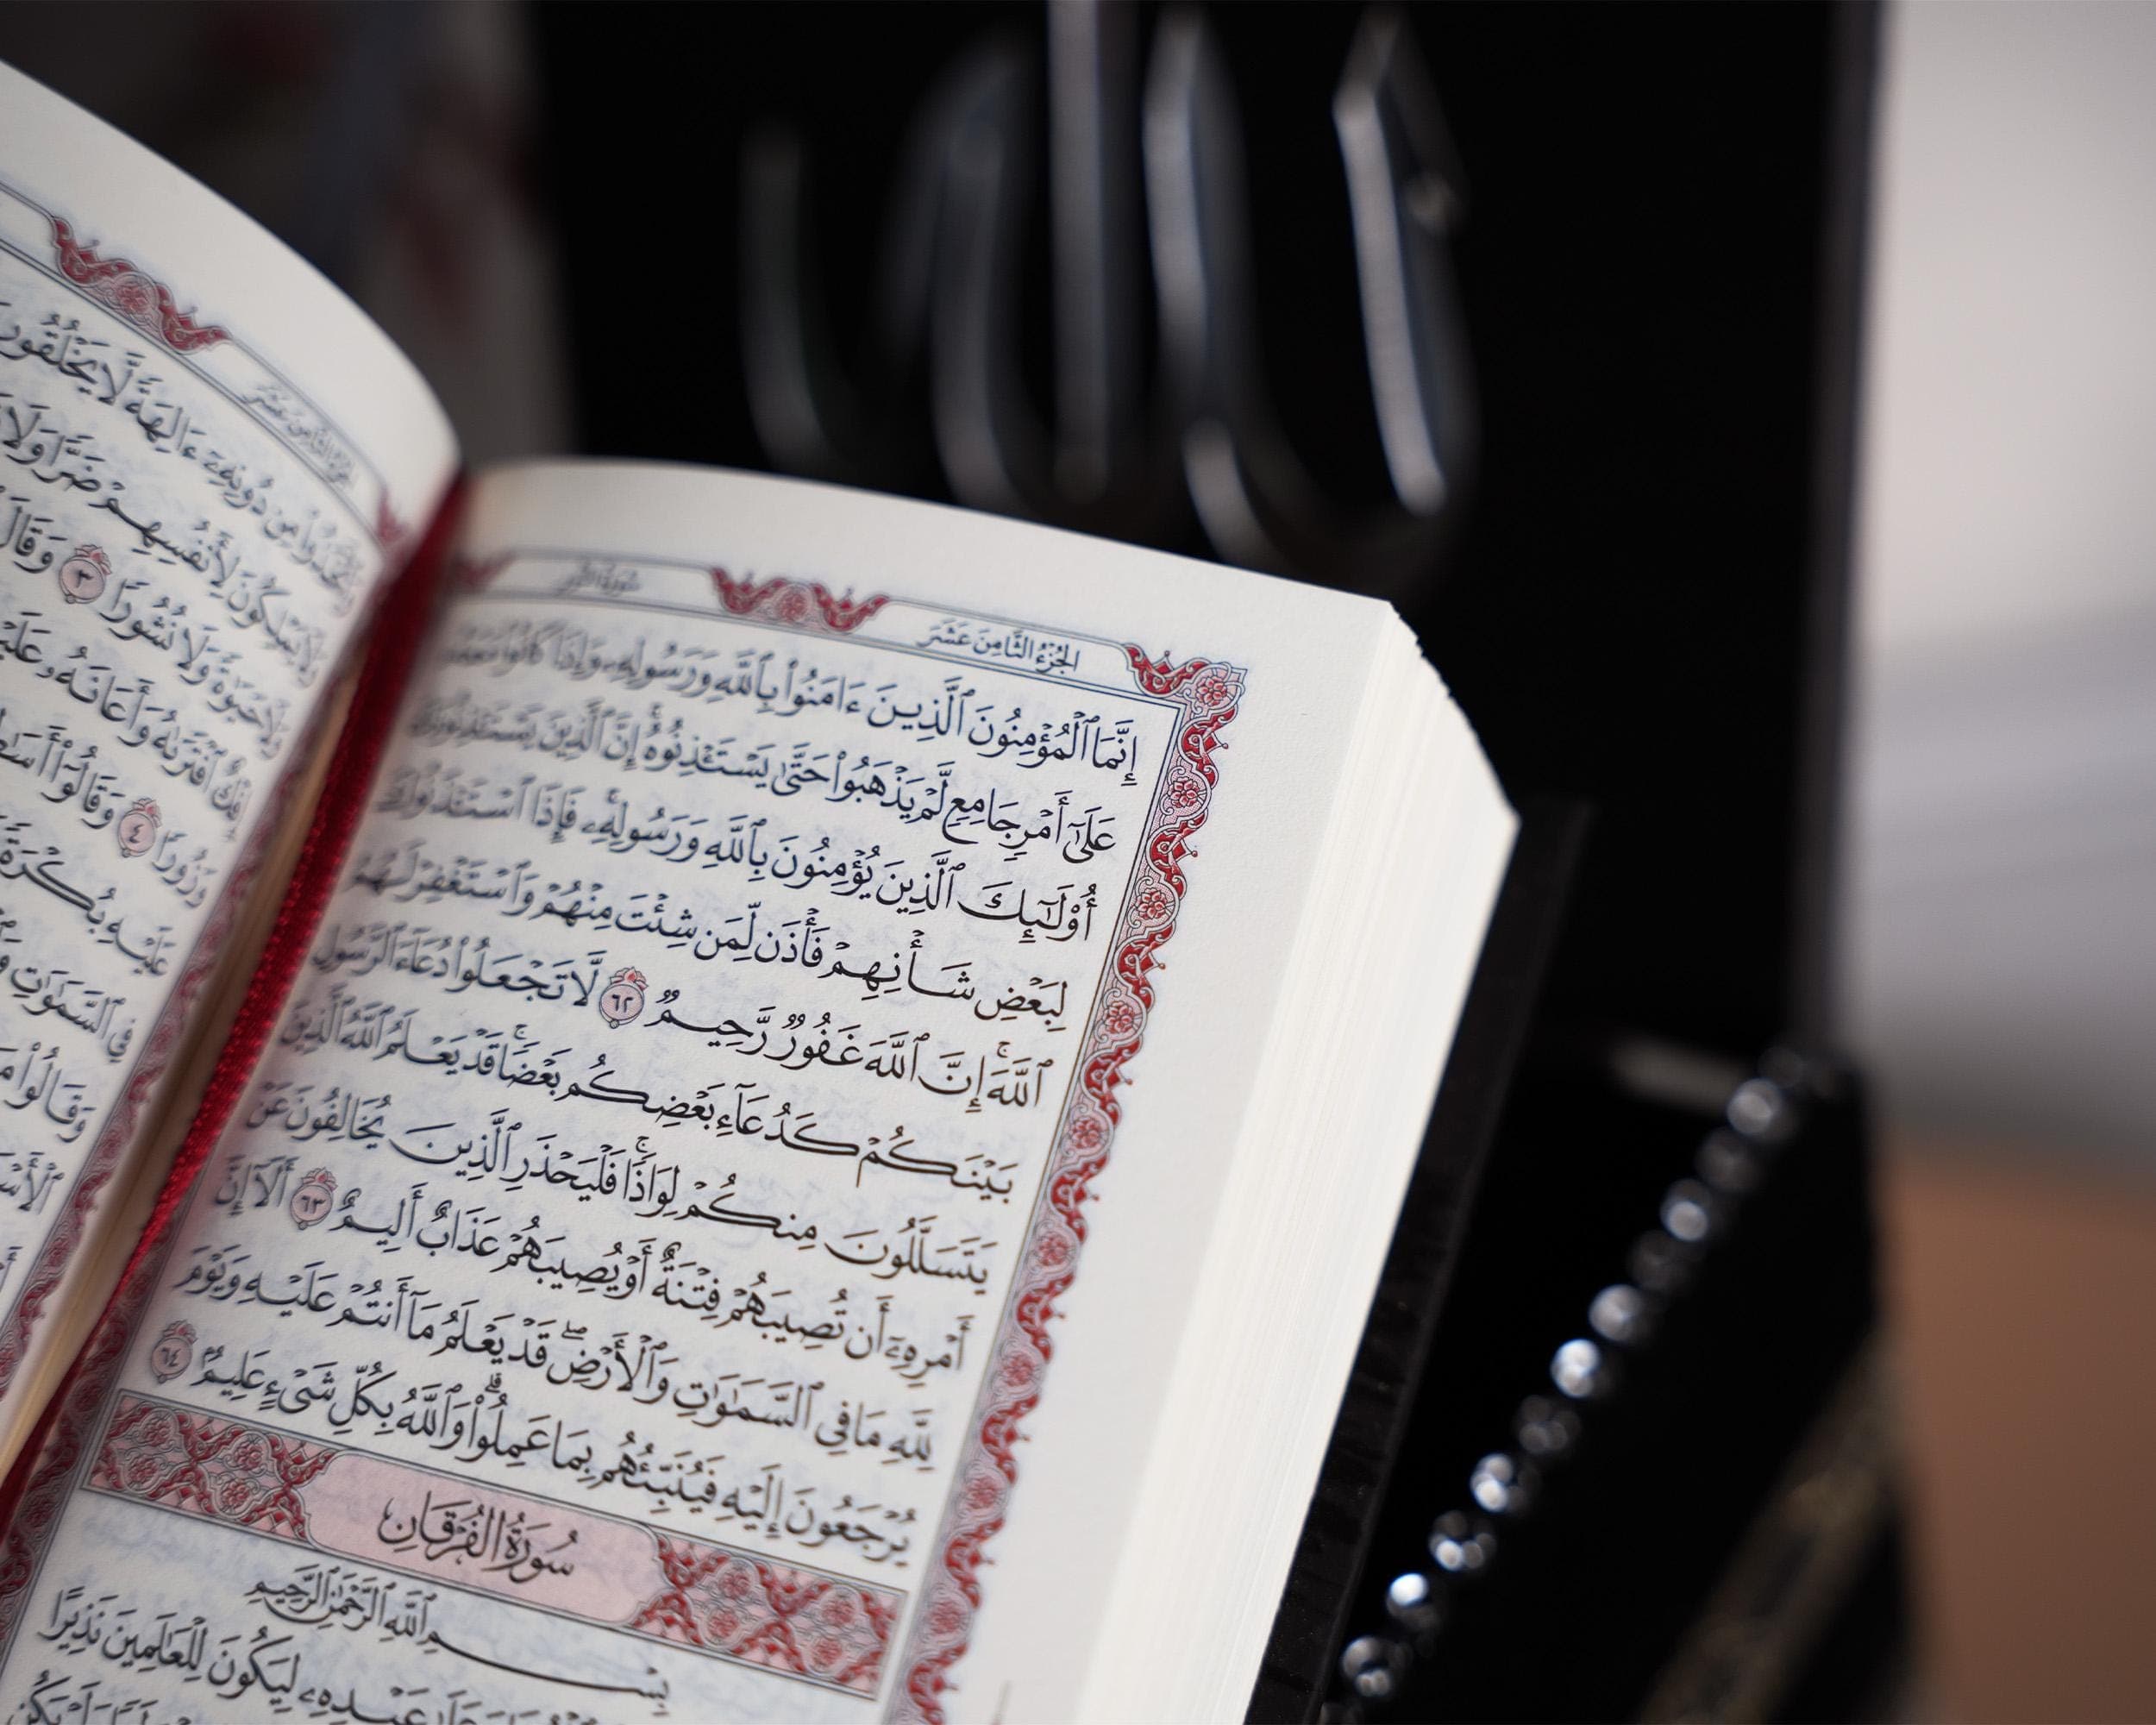 الجزء الثامن عشر
سورة النور
إِنَّمَا ٱلْمُؤْمِنُونَ ٱلَّذِينَ ءَامَنُوا۟ بِٱللَّهِ وَرَسُولِهِۦ وَإِذَا كَانُوا۟ مَعَهُۥ
عَلَىٰٓ أَمْرٍ جَامِعٍ لَّمْ يَذْهَبُوا۟ حَتَّىٰ يَسْتَـْٔذِنُوهُ ۚ إِنَّ ٱلَّذِينَ يَسْتَـْٔذِنُونَكَ
أُو۟لَـٰٓئِكَ ٱلَّذِينَ يُؤْمِنُونَ بِٱللَّهِ وَرَسُولِهِۦ ۚ فَإِذَا ٱسْتَـْٔذَنُوكَ
لِبَعْضِ شَأْنِهِمْ فَأْذَن لِّمَن شِئْتَ مِنْهُمْ وَٱسْتَغْفِرْ لَهُمُ
ٱللَّهَ ۚ إِنَّ ٱللَّهَ غَفُورٌ رَّحِيمٌ ٦٢ لَّا تَجْعَلُوا۟ دُعَآءَ ٱلرَّسُولِ
بَيْنَكُمْ كَدُعَآءِ بَعْضِكُم بَعْضًا ۚ قَدْ يَعْلَمُ ٱللَّهُ ٱلَّذِينَ
يَتَسَلَّلُونَ مِنكُمْ لِوَاذًا ۚ فَلْيَحْذَرِ ٱلَّذِينَ يُخَالِفُونَ عَنْ
أَمْرِهِۦٓ أَن تُصِيبَهُمْ فِتْنَةٌ أَوْ يُصِيبَهُمْ عَذَابٌ أَلِيمٌ ٦٣ أَلَآ إِنَّ
لِلَّهِ مَا فِى ٱلسَّمَـٰوَٰتِ وَٱلْأَرْضِ ۖ قَدْ يَعْلَمُ مَآ أَنتُمْ عَلَيْهِ وَيَوْمَ
يُرْجَعُونَ إِلَيْهِ فَيُنَبِّئُهُم بِمَا عَمِلُوا۟ ۗ وَٱللَّهُ بِكُلِّ شَىْءٍ عَلِيمٌ ٦٤
سُورَةُ الْفُرْقَانِ
بِسْمِ ٱللَّهِ ٱلرَّحْمَـٰنِ ٱلرَّحِيمِ
عَبْدِهِۦ لِيَكُونَ لِلْعَـٰلَمِينَ نَذِيرًا
الجزء الثامن عشر
مِن دُونِهِۦٓ ءَالِهَةً لَّا يَخْلُقُونَ
لِأَنفُسِهِمْ ضَرًّا وَلَا
وَلَا حَيَوٰةً وَلَا نُشُورًا ٣ وَقَالَ
ٱفْتَرَىٰهُ وَأَعَانَهُۥ عَلَيْهِ
وَزُورًا ٤ وَقَالُوٓا۟
عَلَيْهِ بُكْرَةً
فِى ٱلسَّمَـٰوَٰتِ
وَقَالُوا۟